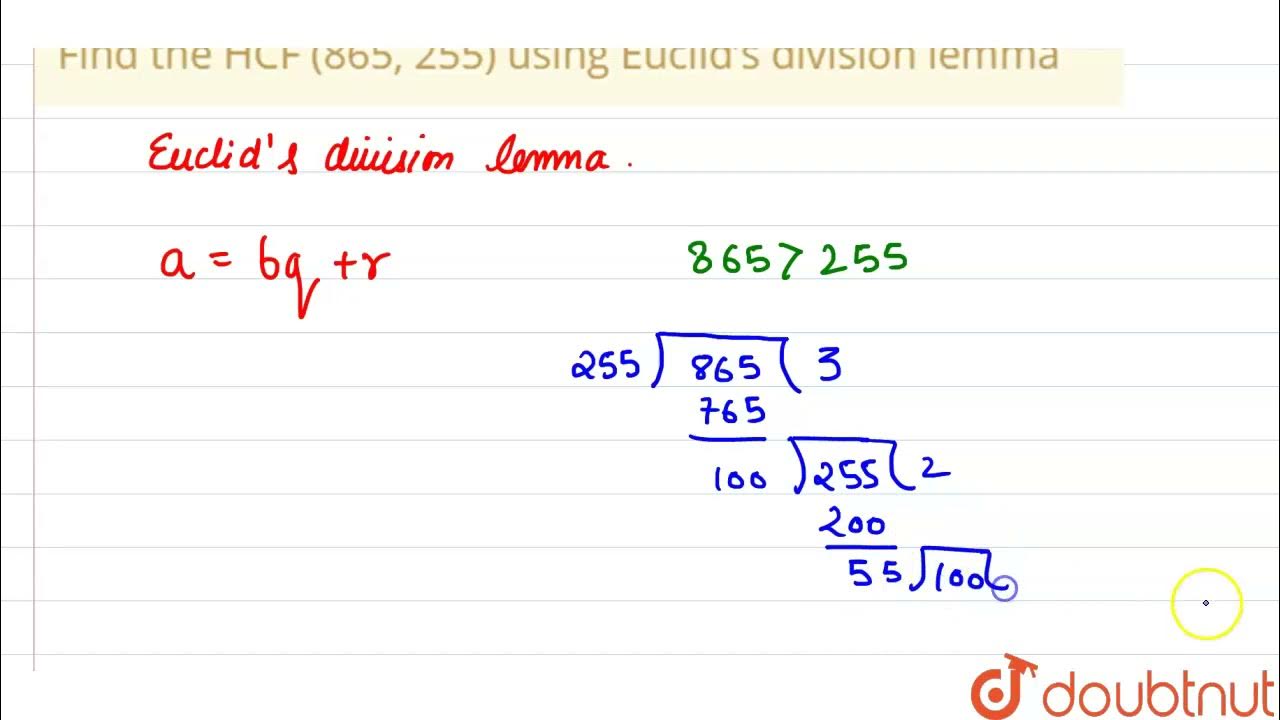 Find the HCF (865, 255) using Euclid's division lemma
Euclid's division lemma.
a = bq + r
865 > 255
255 ) 865 ( 3
765
100 ) 255 ( 2
200
55 ) 100 (
doubtnut